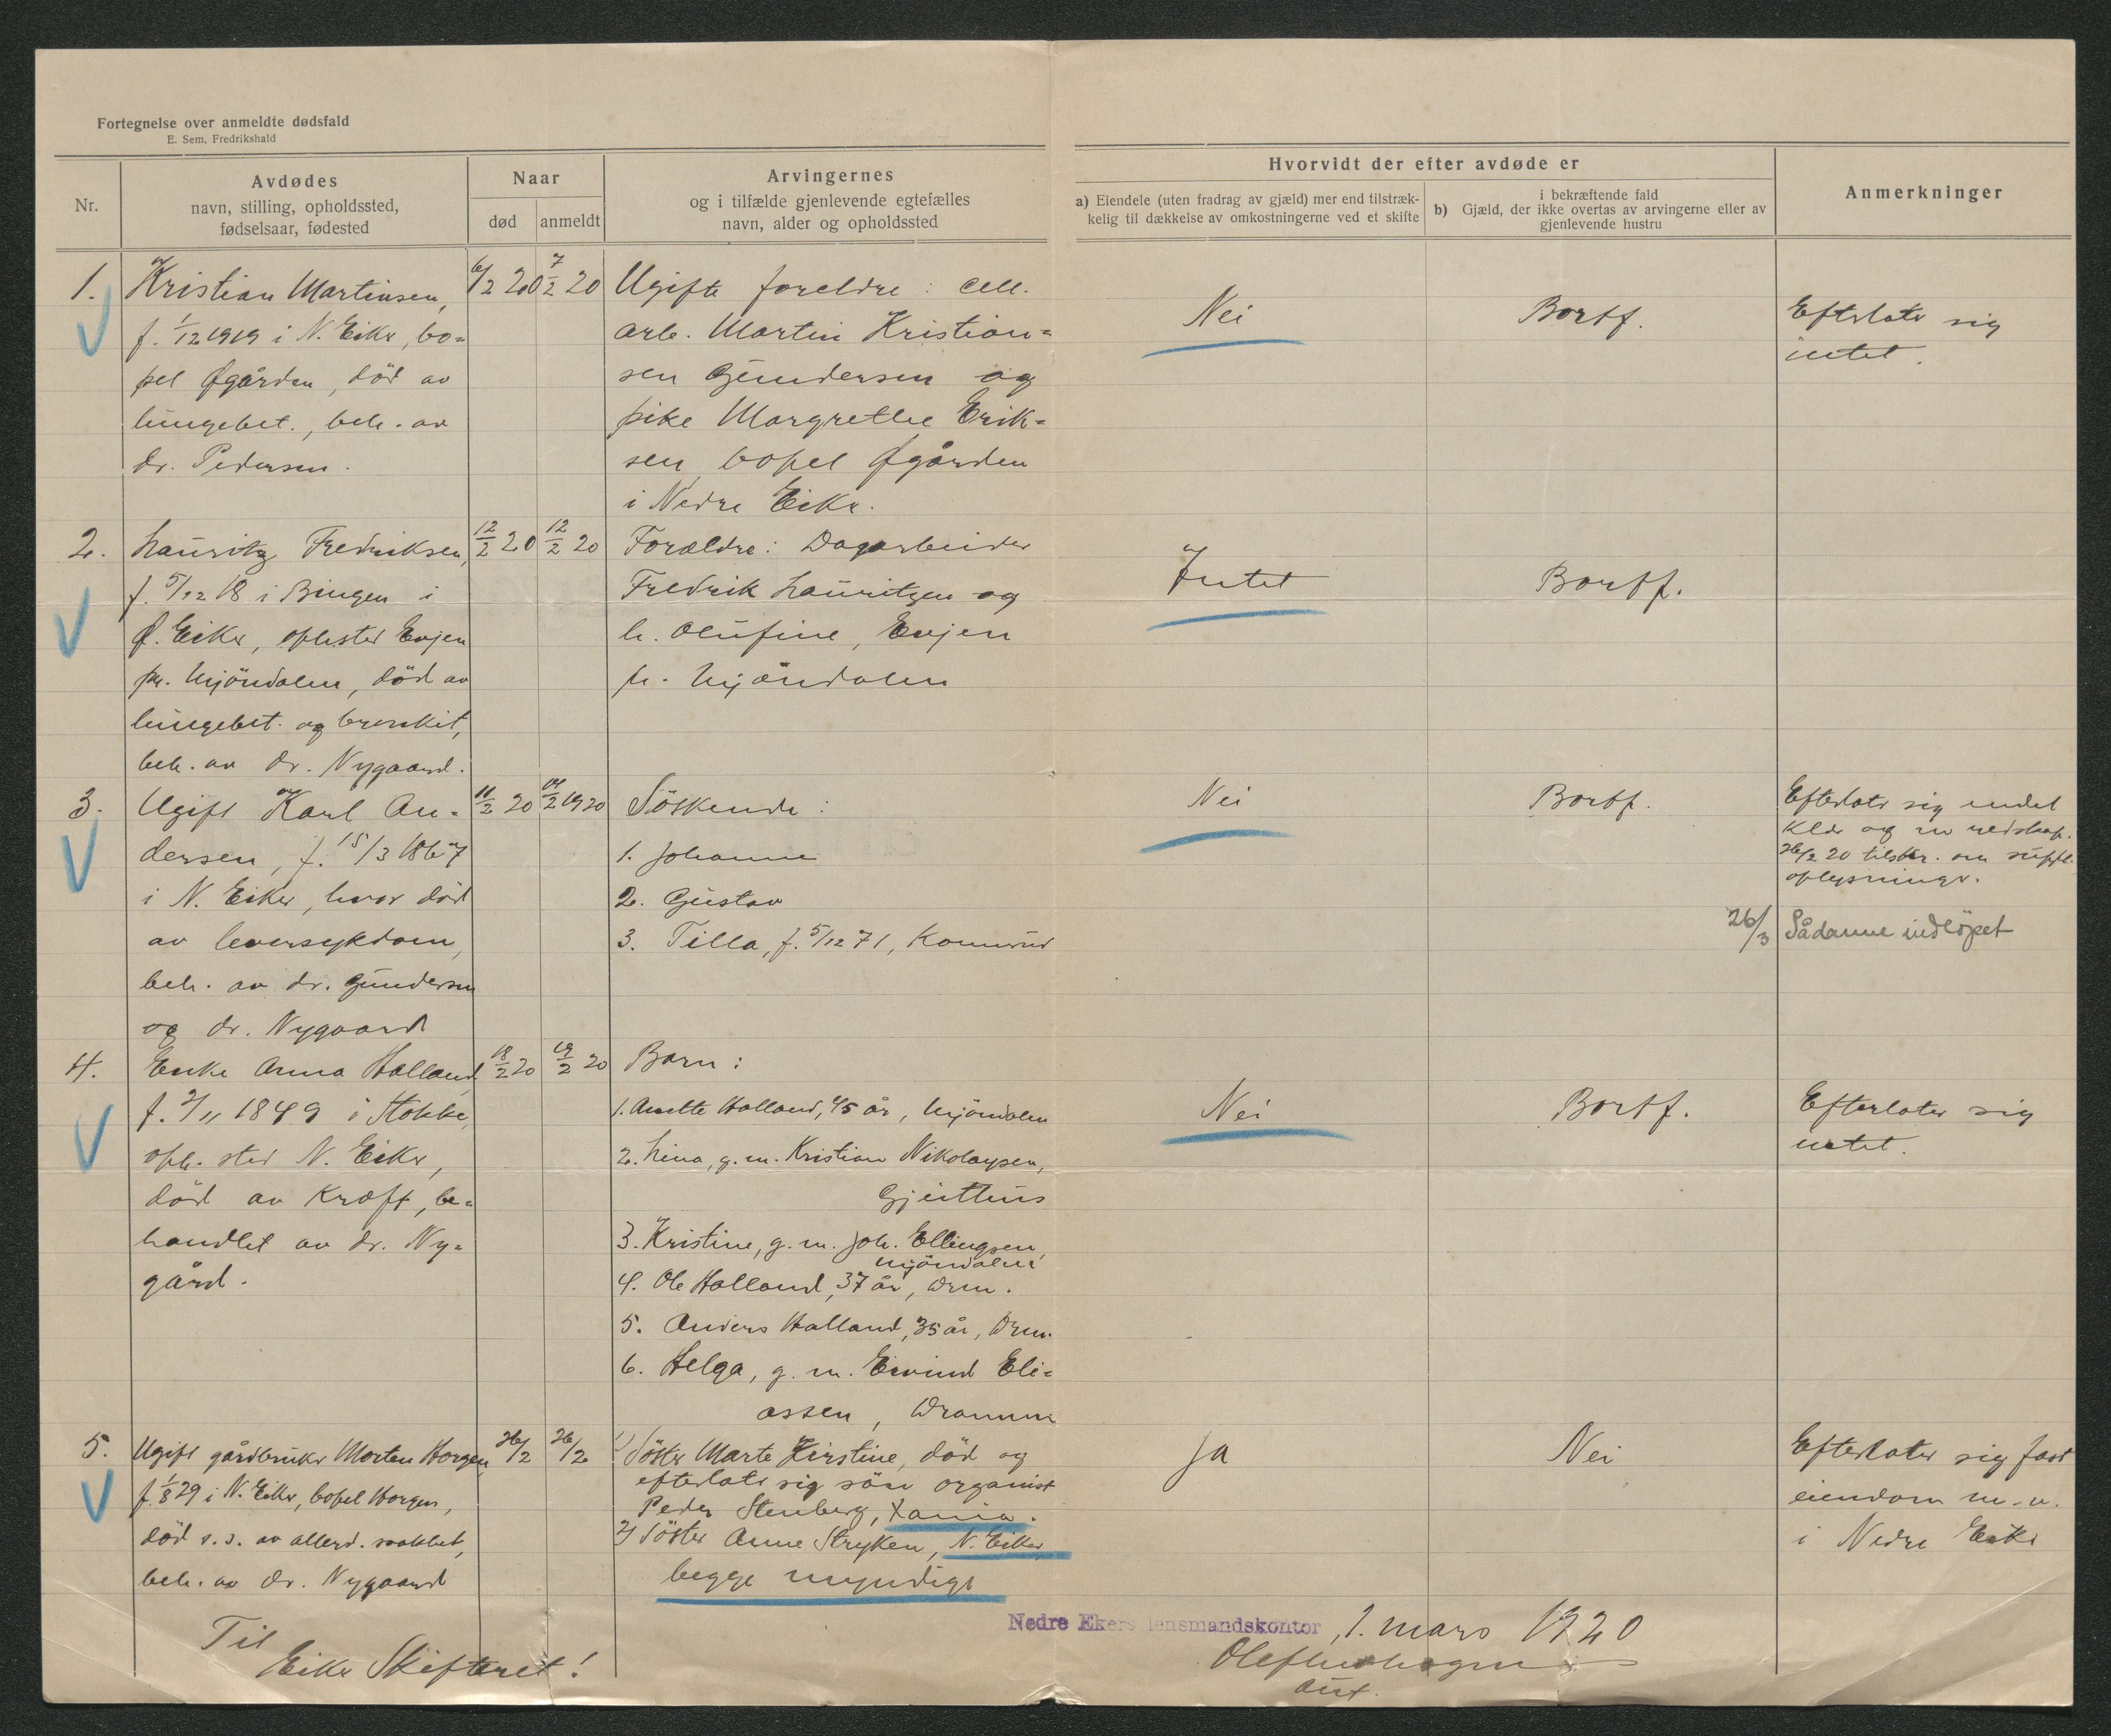 Fortegnelse over anmeldte dødsfald
E. Sem, Fredrikshald
Nr.
Avdødes
navn, stilling, opholdssted,
fødselsaar, fødested
Naar
død
anmeldt
Arvingernes
og i tilfælde gjenlevende egtefælles
navn, alder og opholdssted
Hvorvidt der efter avdøde er
a) Eiendele (uten fradrag av gjæld) mer end tilstræk-
kelig til dækkelse av omkostningerne ved et skifte
i bekræftende fald
b) Gjæld, der ikke overtas av arvingerne eller av
gjenlevende hustru
Anmerkninger
1.
Kristian Martinsen,
f. 1/12 1919 i N. Eiker, bo=
pel Øgården, död av
lungebet., beh. av
dr. Pedersen.
6/2 20
7/2 20
Ugifte foreldre: cell.
arb. Martin Kristian=
sen Gundersen og
pike Margrethe Erik=
sen, bopel Øgården
i Nedre Eiker.
Nei
Bortf.
Efterlater sig
intet.
2.
Lauritz Fredriksen,
f. 5/12 18 i Bingen i
Ø. Eiker, oph.sted Evjen
pr. Mjöndalen, död av
lungebet. og bronkit,
beh. av dr. Nygaard.
12/2 20
12/2 20
Forældre: Dagarbeider
Fredrik Lauritzen og
h. Olufine, Evjen
p. Mjöndalen
Intet
Bortf.
3.
Ugift Karl An-
dersen, f. 15/3 1867
i N. Eiker, hvor död
av leversykdom,
beh. av dr. Gundersen
og dr. Nygaard
11/2 20
14/2 1920
Söskende:
1. Johanne
2. Gustav
3. Tilla, f. 5/12 71, Komnrud
Nei
Bortf.
Efterlater sig endel
klær og en redskap.
26/2 20 tilskr. om suppl.
oplysninger.
26/3 Sådanne indlöpet
4.
Enke Anna Holland
f. 2/11 1849 i Stokke,
oph. sted N. Eiker,
död av kræft, be=
handlet av dr. Ny=
gård.
18/2 20
19/2 20
Barn:
1. Anette Holland, 45 år, Mjöndalen
2. Lina, g. m. Kristian Nikolaysen,
Gjeithus
3. Kristine, g. m. Joh. Ellingsen,
Mjöndalen
4. Ole Holland, 37 år, Drm.
5. Anders Holland, 35 år, Drm.
6. Helga, g. m. Eivind Eli=
assen, Drammen
Nei
Bortf.
Efterlater sig
intet.
5.
Ugift gårdbruker Morten Horgen,
f. 1/8 29 i N. Eiker, bopel Horgen,
död s.s. av allerd. svakhet,
beh. av dr. Nygaard
26/2
26/2
1) Söster Marte Kirstine, död og
efterlater sig sön organist
Peder Stenberg, Xania.
2) Söster Anne Stryken, N. Eiker,
begge myndige
Ja
Nei
Efterlater sig fast
eiendom m.v.
i Nedre Eiker
Til
Eiker Skifteret!
Nedre Ekers lensmandskontor, 1. mars 1920